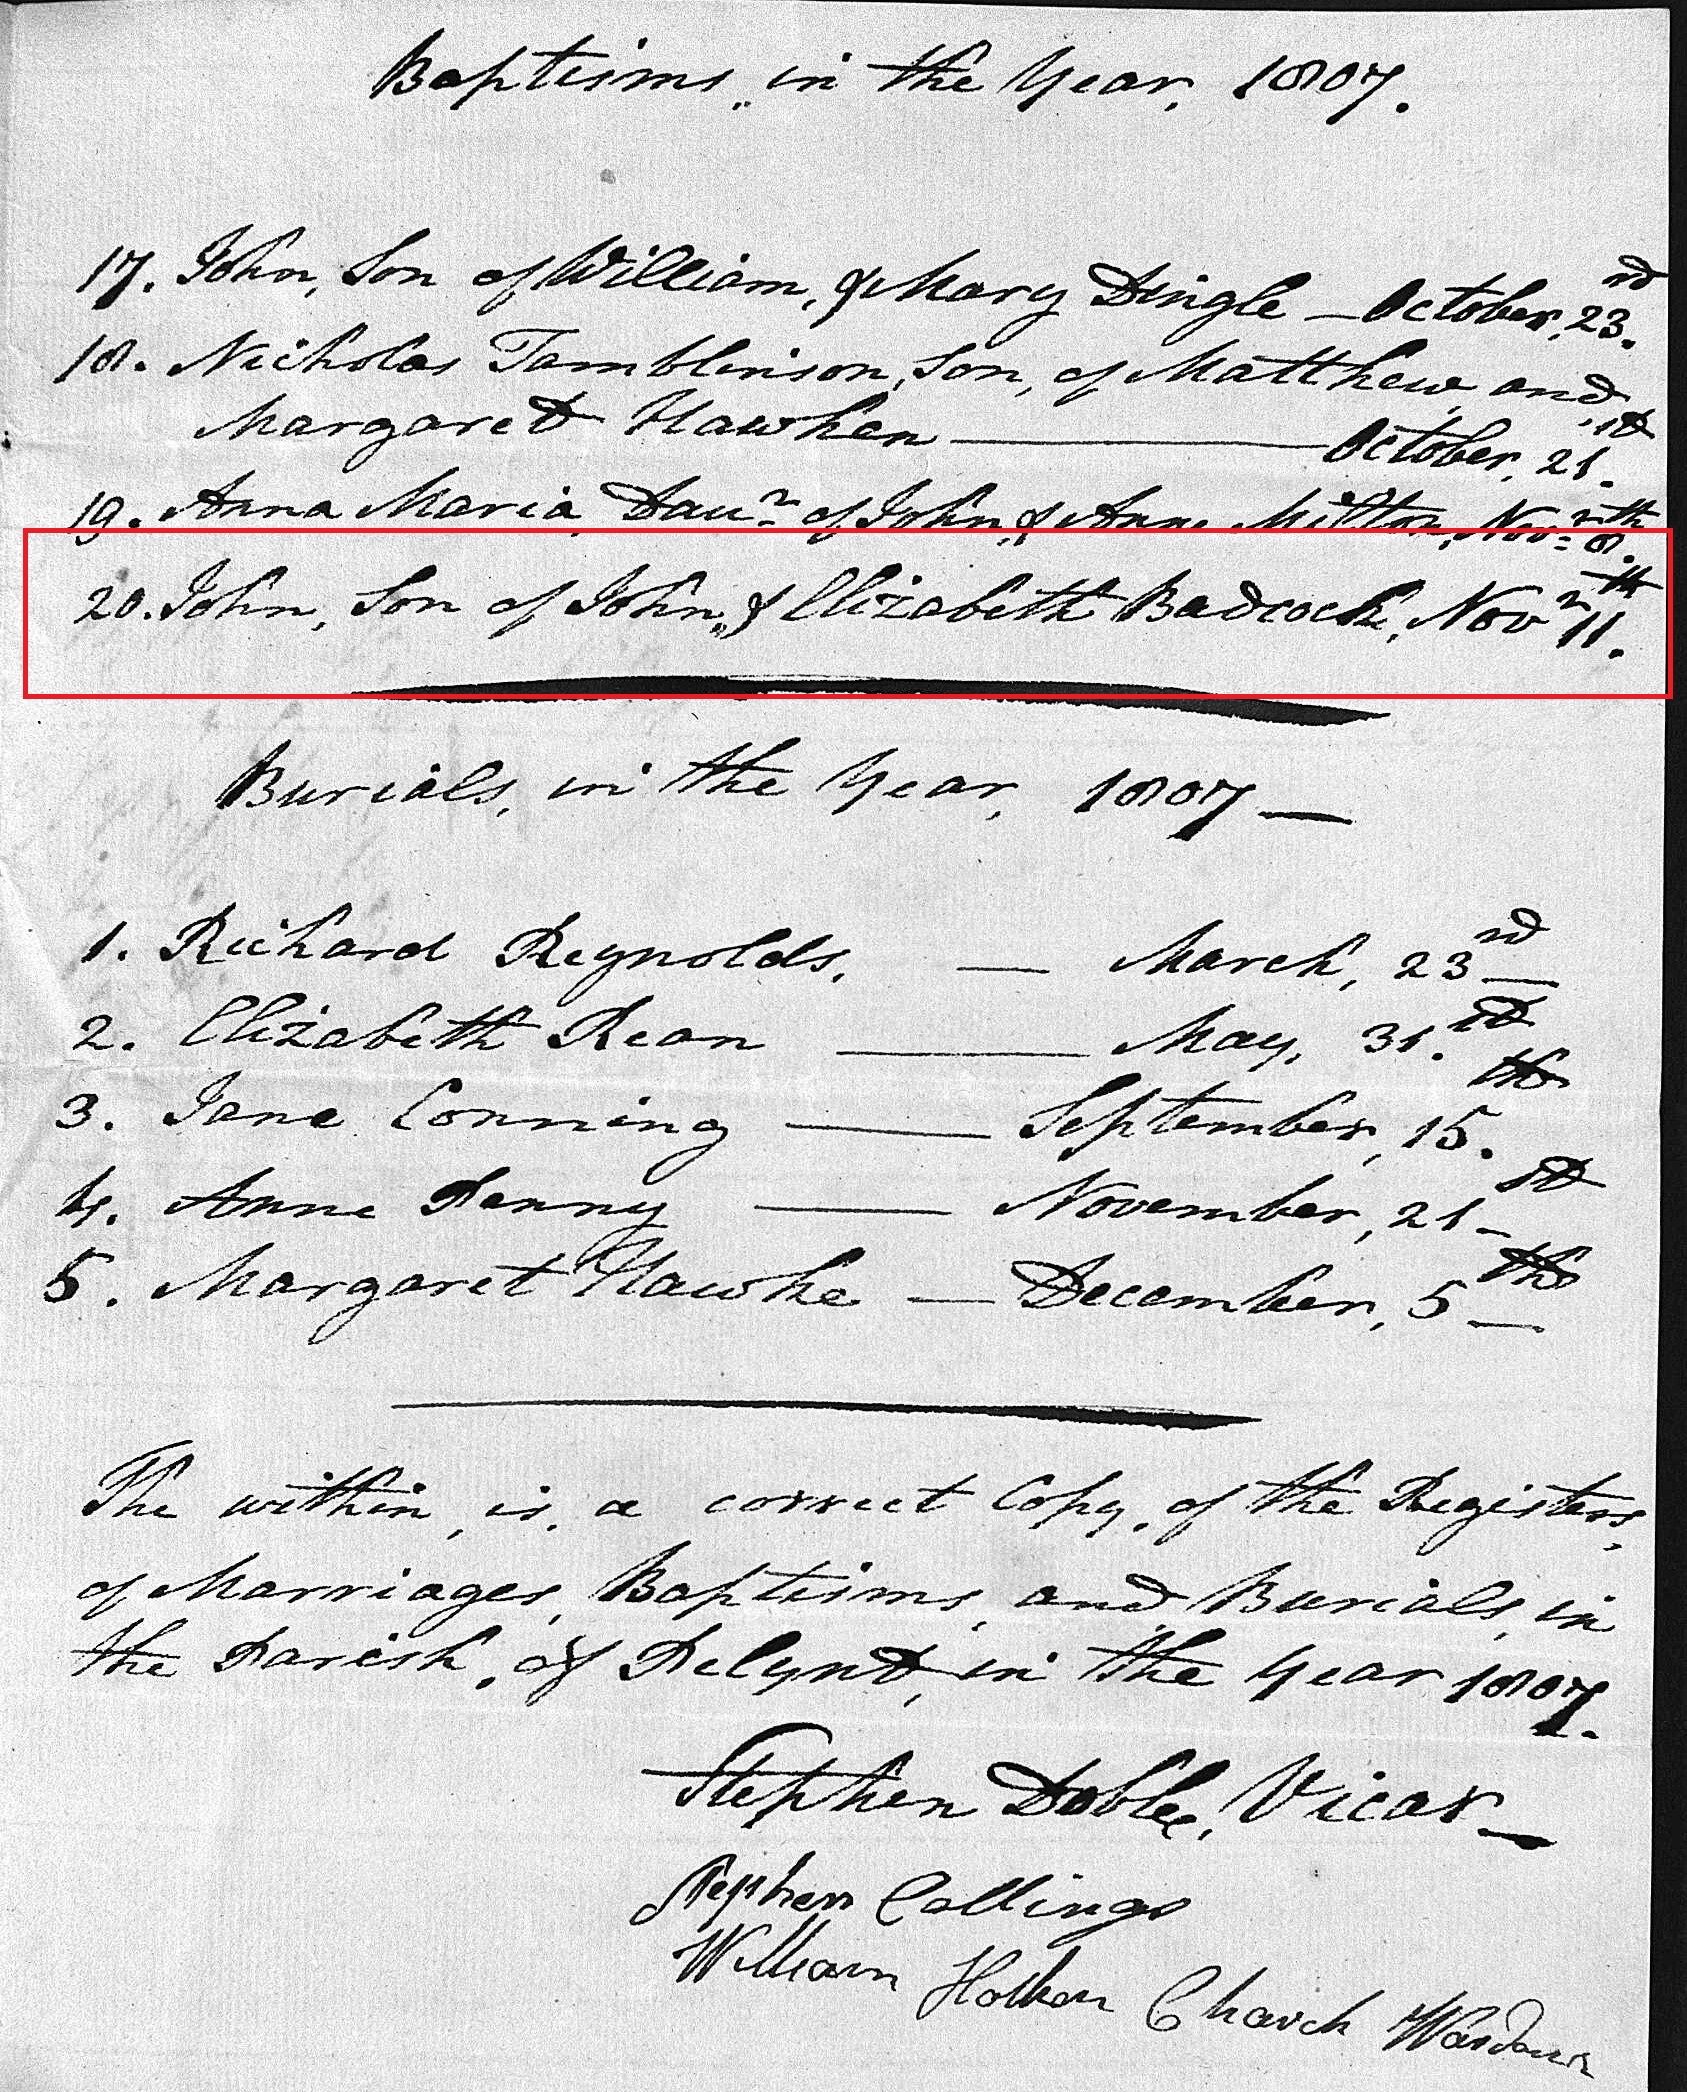 Baptisms, in the Year, 1807.
17. John, Son of William, & Mary Dingle — October, 23.rd
18. Nicholas Tamblinson, Son, of Matthew, and
Margaret Hawken — October, 21.st
19. Anna Maria, Daur. of John, & Anne Milton, Novr. 8.th
20. John, Son of John, & Elizabeth Badcock, Novr 11.th
Burials, in the Year, 1807 —
1. Richard Reynolds, — March, 23rd —
2. Elizabeth Rean — May, 31.st
3. Jane Conning — September, 15.th
4. Anne Penny — November, 21st —
5. Margaret Hawke — December, 5th —
The within, is, a correct Copy, of the Registers,
of Marriages, Baptisms, and Burials, in
the Parish, of Pelynt, in the Year 1807.
Stephen Doble, Vicar —
Stephen Collings
William Church Wardens